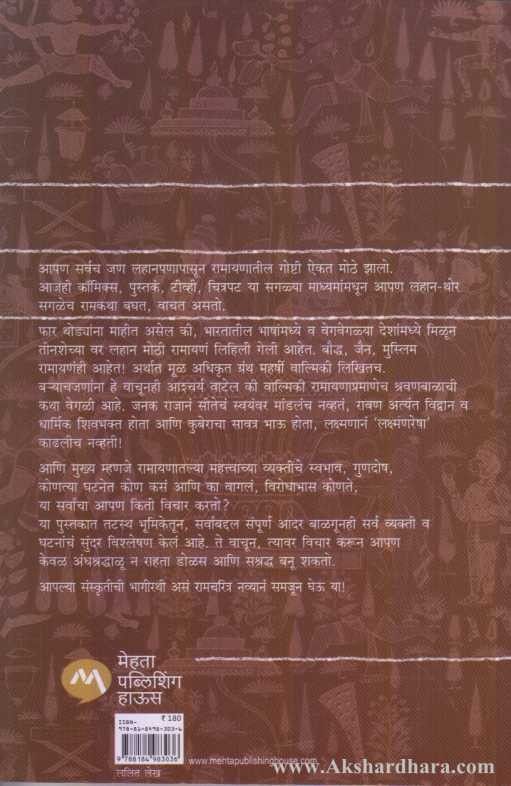 आपण सर्वच जण लहानपणापासून रामायणातील गोष्टी ऐकत मोठे झालो.
आजही कॉमिक्स, पुस्तकं, टीव्ही, चित्रपट या सगळ्या माध्यमांमधून आपण लहान-थोर
सगळेच रामकथा बघत, वाचत असतो.
फार थोड्यांना माहीत असेल की, भारतातील भाषांमध्ये व वेगवेगळ्या देशांमध्ये मिळून
तीनशेच्या वर लहान मोठी रामायणं लिहिली गेली आहेत. बौद्ध, जैन, मुस्लिम
रामायणंही आहेत! अर्थात मूळ अधिकृत ग्रंथ महर्षी वाल्मिकी लिखितच.
बऱ्याचजणांना हे वाचूनही आश्चर्य वाटेल की वाल्मिकी रामायणाप्रमाणेच श्रवणबाळाची
कथा वेगळी आहे. जनक राजानं सीतेचं स्वयंवर मांडलंच नव्हतं, रावण अत्यंत विद्वान व
धार्मिक शिवभक्त होता आणि कुबेराचा सावत्र भाऊ होता, लक्ष्मणानं 'लक्ष्मणरेषा'
काढलीच नव्हती!
आणि मुख्य म्हणजे रामायणातल्या महत्त्वाच्या व्यक्तींचे स्वभाव, गुणदोष,
कोणत्या घटनेत कोण कसं आणि का वागलं, विरोधाभास कोणते,
या सर्वांचा आपण किती विचार करतो?
या पुस्तकात तटस्थ भूमिकेतून, सर्वांबद्दल संपूर्ण आदर बाळगूनही सर्व व्यक्ती व
घटनांचं सुंदर विश्लेषण केलं आहे. ते वाचून, त्यावर विचार करून आपण
केवळ अंधश्रद्धाळू न राहता डोळस आणि सश्रद्ध बनू शकतो.
आपल्या संस्कृतीची भागीरथी असं रामचरित्र नव्यानं समजून घेऊ या!
मेहता
पब्लिशिंग
हाऊस
ISBN-
₹ 180
978-81-8498-303-6
9 788184 983036
ललित लेख
www.mehtapublishinghouse.com
www.Akshardhara.com